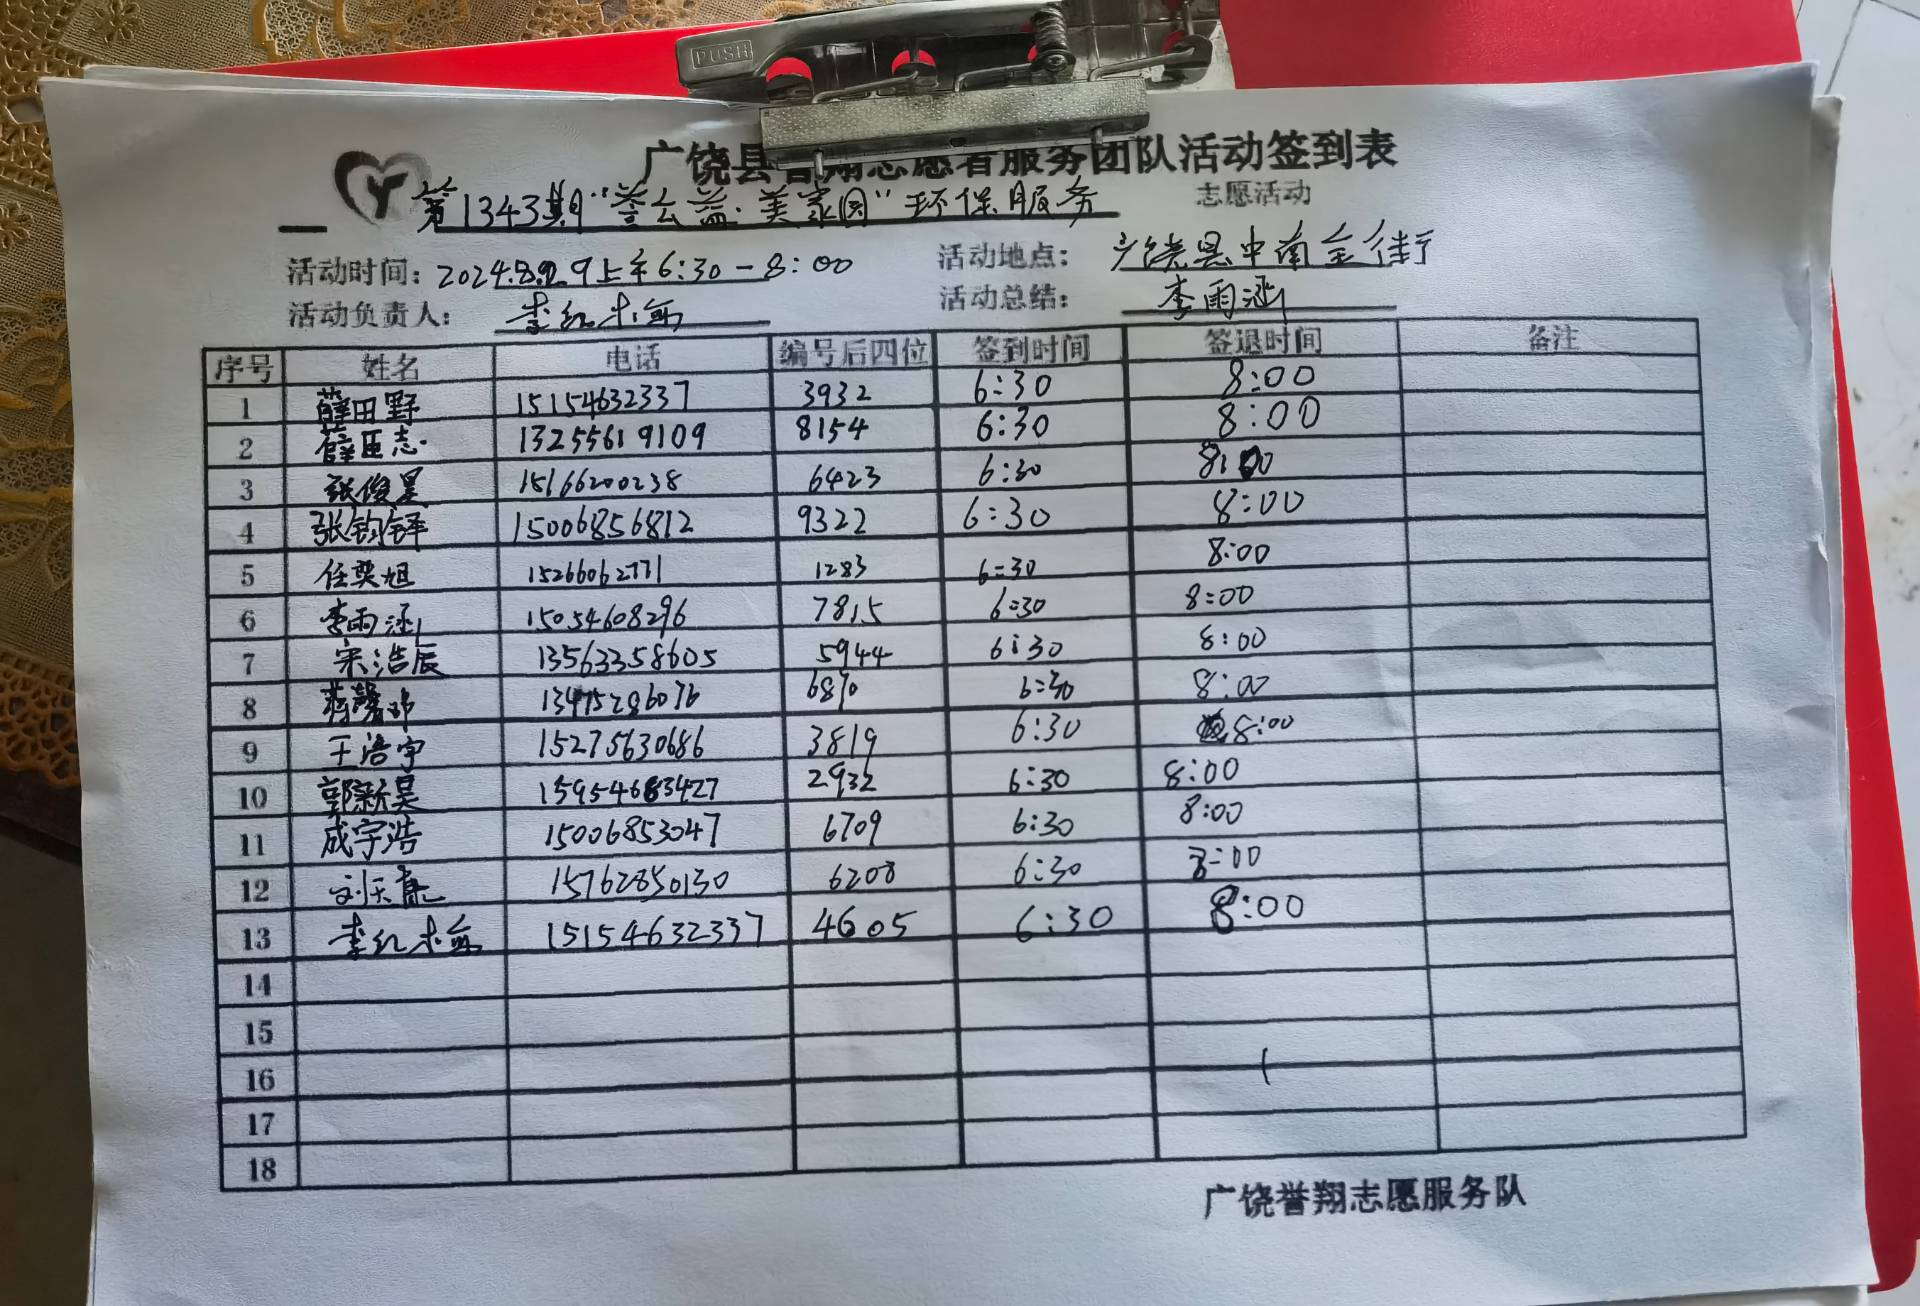 PUSH
广饶县誉翔志愿者服务团队活动签到表
第1343期"誉公益·美家园"环保服务 志愿活动
活动时间: 上午6:30-8:00 活动地点: 广饶县中南金街
活动负责人: 李红梅 活动总结: 李雨涵
序号 姓名 电话 编号后四位 签到时间 签退时间 备注
1 薛田野 15154632337 3932 6:30 8:00
2 薛臣志 13255619109 8154 6:30 8:00
3 张俊昊 15166200238 6423 6:30 8:00
4 张钧铎 15006856812 9322 6:30 8:00
5 任奕旭 15266062771 1283 6:30 8:00
6 李雨涵 15054608296 7815 6:30 8:00
7 宋浩辰 13563358605 5944 6:30 8:00
8 13475286076 6870 6:30 8:00
9 于浩宇 15275630686 3819 6:30 8:00
10 郭新昊 15954683427 2932 6:30 8:00
11 成宇浩 15006853047 6709 6:30 8:00
12 刘天亮 15762850130 6208 6:30 8:00
13 李红梅 15154632337 4605 6:30 8:00
14
15
16
17
18
广饶誉翔志愿服务队